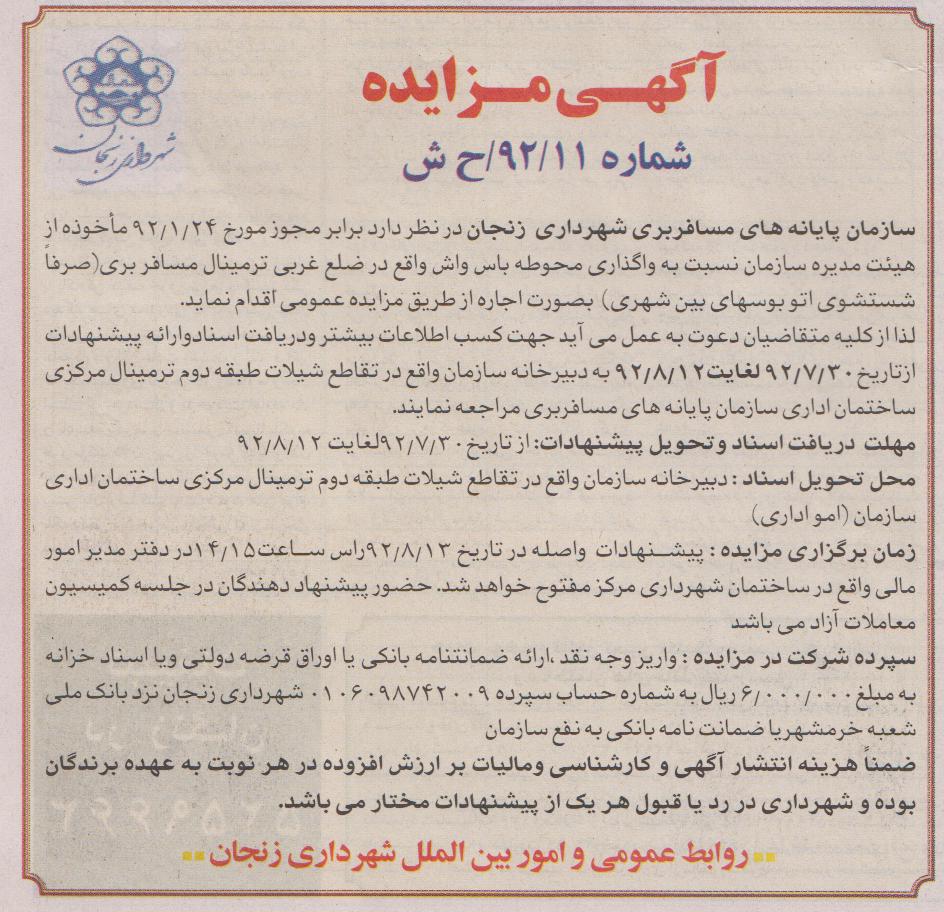 شهرداری زنجان
آگهی مزایده
شماره ۹۲/۱۱/ح ش
سازمان پایانه های مسافربری شهرداری زنجان در نظر دارد برابر مجوز مورخ ۹۲/۱/۲۴ مأخوذه از
هیئت مدیره سازمان نسبت به واگذاری محوطه باس واش واقع در ضلع غربی ترمینال مسافر بری(صرفاً
شستشوی اتو بوسهای بین شهری) بصورت اجاره از طریق مزایده عمومی اقدام نماید.
لذا از کلیه متقاضیان دعوت به عمل می آید جهت کسب اطلاعات بیشتر ودریافت اسنادوارائه پیشنهادات
ازتاریخ ۹۲/۷/۳۰ لغایت۹۲/۸/۱۲ به دبیرخانه سازمان واقع در تقاطع شیلات طبقه دوم ترمینال مرکزی
ساختمان اداری سازمان پایانه های مسافربری مراجعه نمایند.
مهلت دریافت اسناد وتحویل پیشنهادات: از تاریخ ۹۲/۷/۳۰لغایت ۹۲/۸/۱۲
محل تحویل اسناد : دبیرخانه سازمان واقع در تقاطع شیلات طبقه دوم ترمینال مرکزی ساختمان اداری
سازمان (امو اداری)
زمان برگزاری مزایده : پیشنهادات واصله در تاریخ ۹۲/۸/۱۳راس ساعت۱۴/۱۵در دفتر مدیر امور
مالی واقع در ساختمان شهرداری مرکز مفتوح خواهد شد. حضور پیشنهاد دهندگان در جلسه کمیسیون
معاملات آزاد می باشد
سپرده شرکت در مزایده : واریز وجه نقد ،ارائه ضمانتنامه بانکی یا اوراق قرضه دولتی ویا اسناد خزانه
به مبلغ ۶/۰۰۰/۰۰۰ ریال به شماره حساب سپرده ۰۱۰۶۰۹۸۷۴۲۰۰۹ شهرداری زنجان نزد بانک ملی
شعبه خرمشهریا ضمانت نامه بانکی به نفع سازمان
ضمناً هزینه انتشار آگهی و کارشناسی ومالیات بر ارزش افزوده در هر نوبت به عهده برندگان
بوده و شهرداری در رد یا قبول هر یک از پیشنهادات مختار می باشد.
روابط عمومی و امور بین الملل شهرداری زنجان